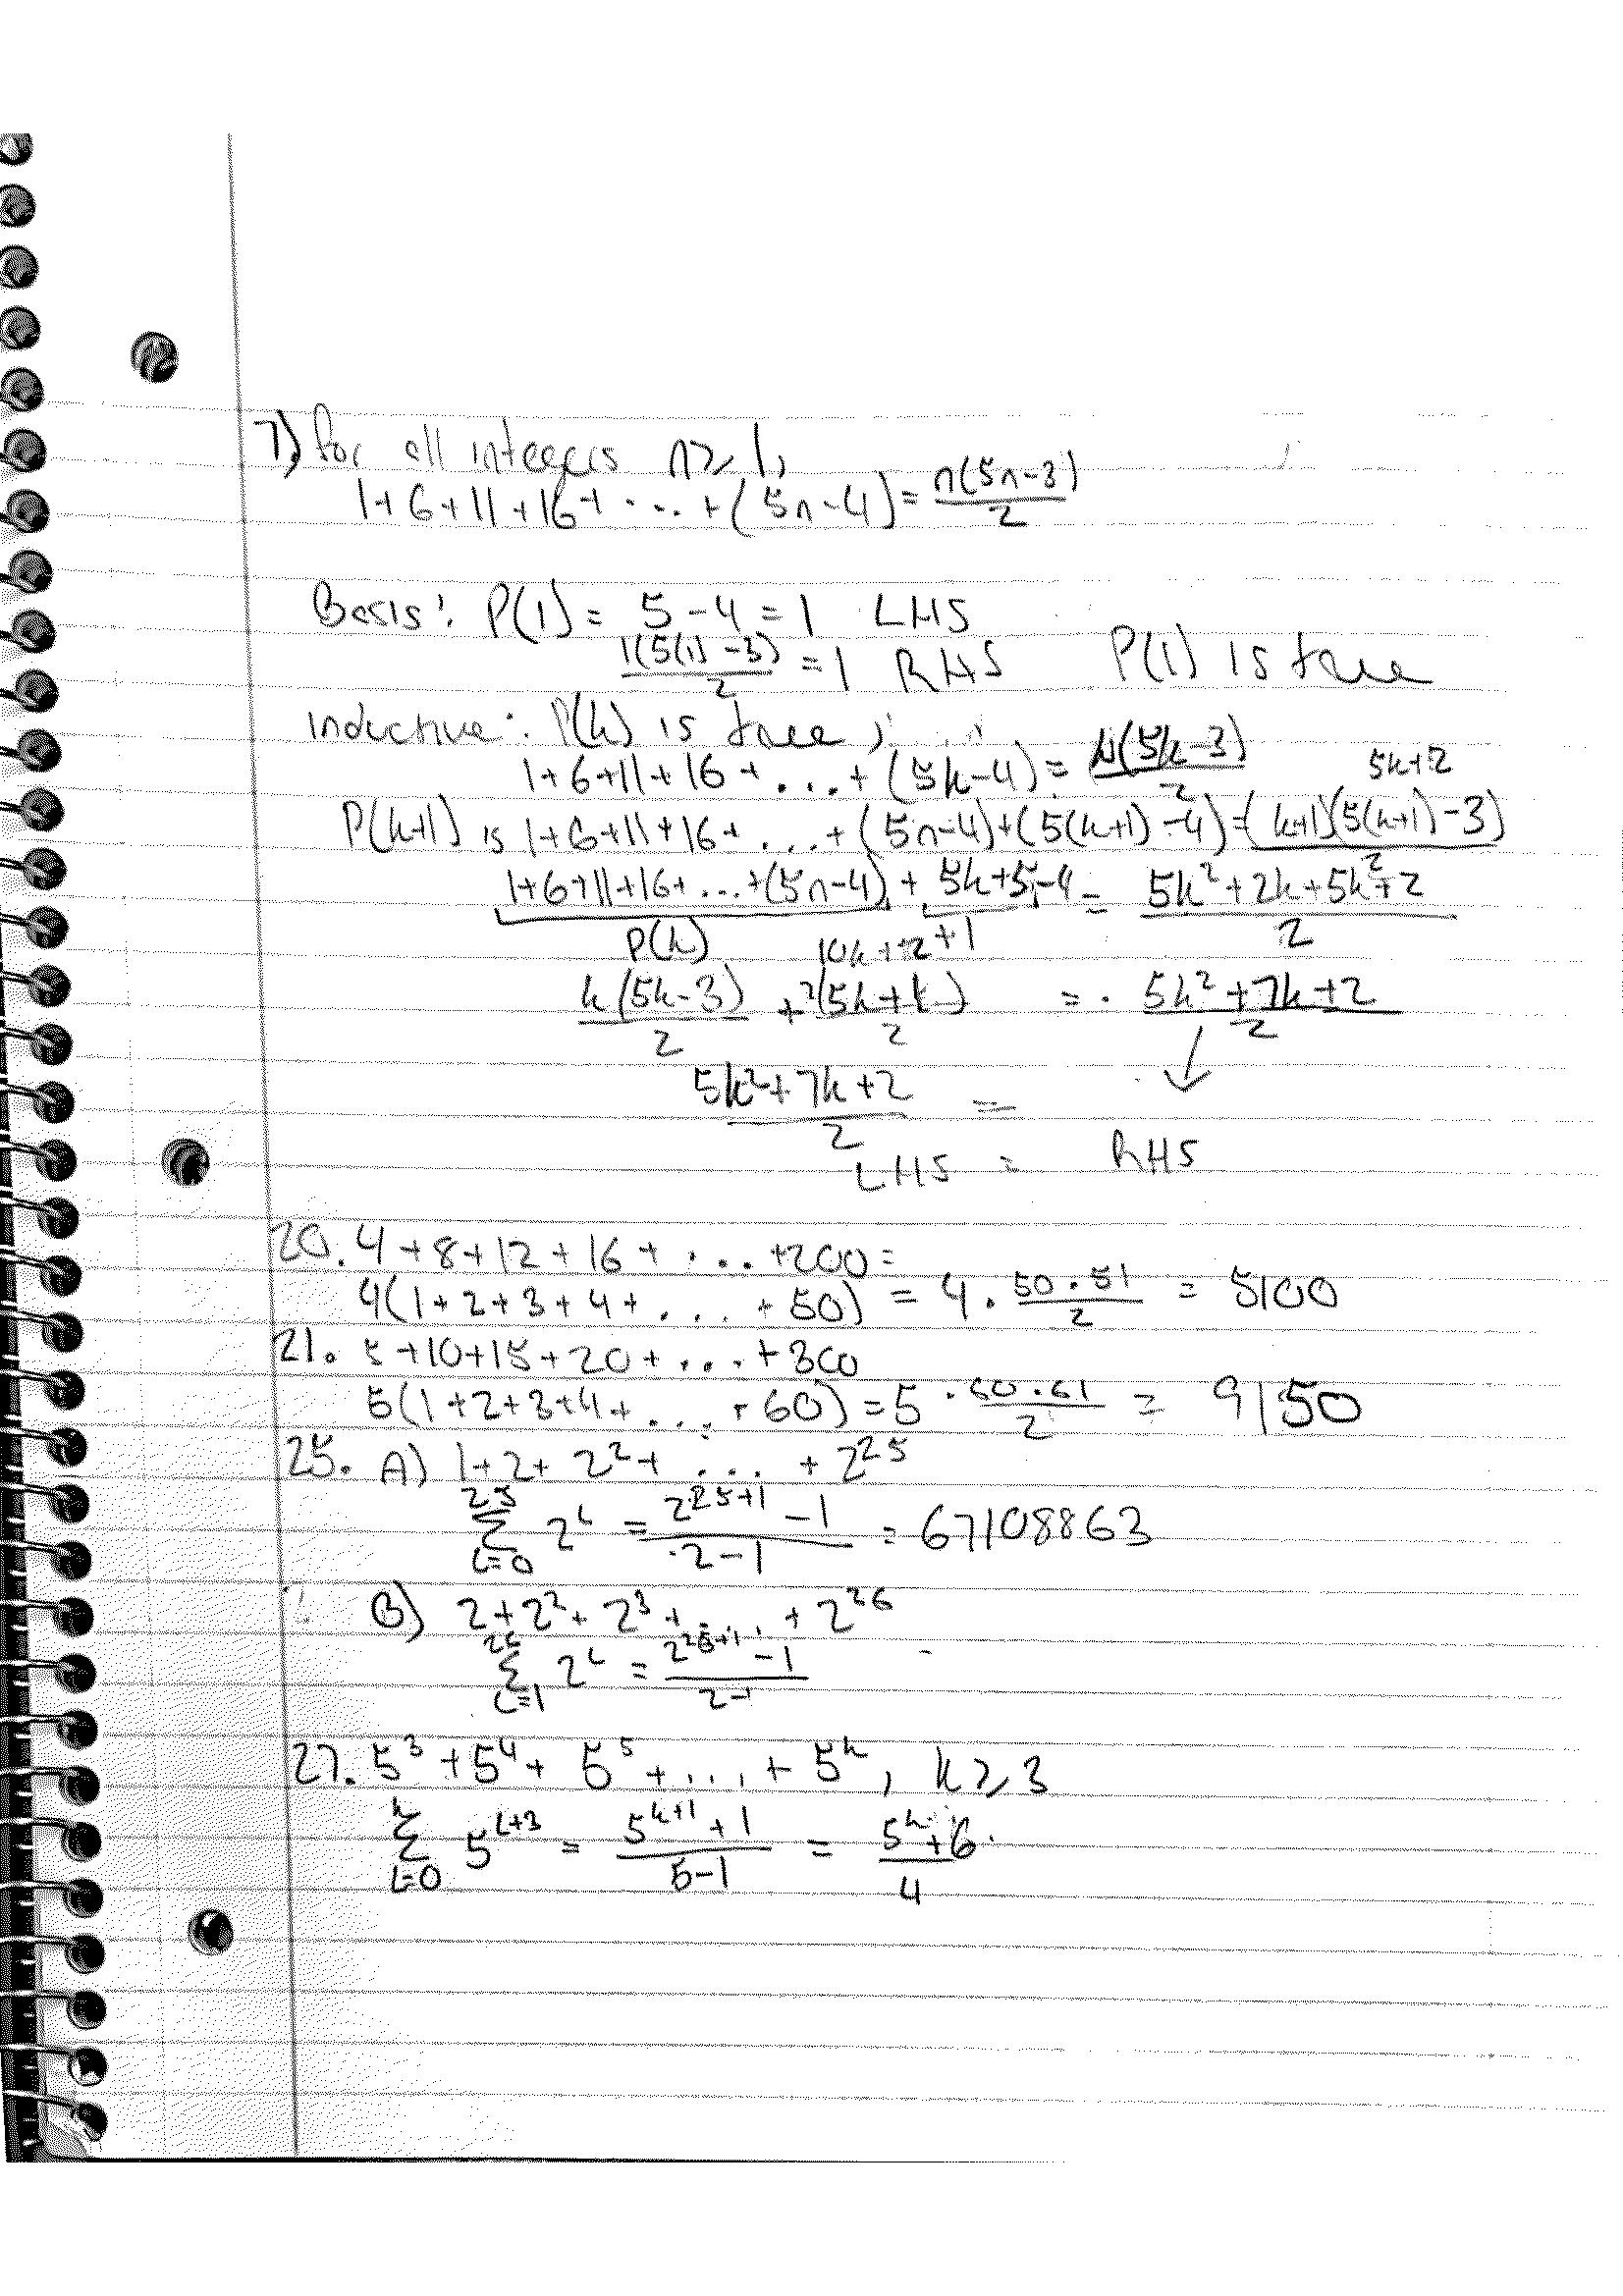 7) for all integers n ≥ 1,
1+6+11+16+ ... +(5n-4) = n(5n-3)/2
Basis: P(1) = 5-4 = 1 LHS
1(5(1)-3)/2 = 1 RHS P(1) is true
inductive: P(k) is true,
1+6+11+16+ ... +(5k-4) = k(5k-3)/2 5k+2
P(k+1) is 1+6+11+16+ ... +(5n-4)+(5(k+1)-4) = (k+1)(5(k+1)-3)/2
1+6+11+16+ ... +(5n-4) + 5k+5-4 = 5k²+2k+5k+2/2
P(k) 10k+2 +1
k(5k-3)/2 + 2(5k+1)/2 = 5k²+7k+2/2
5k²+7k+2/2 = ↓
LHS = RHS
20. 4+8+12+16+ ... +200 =
4(1+2+3+4+ ... +50) = 4·50·51/2 = 5100
21. 5+10+15+20+ ... +300
5(1+2+3+4+ ... +60) = 5·60·61/2 = 9150
25. A) 1+2+2²+ ... +2²⁵
Σ(i=0 to 25) 2ⁱ = 2²⁵⁺¹-1/2-1 = 67108863
B) 2+2²+2³+ ... +2²⁶
Σ(i=1 to 26) 2ⁱ = 2²⁶⁺¹-1/2-1
27. 5³+5⁴+5⁵+ ... +5ᵏ, k ≥ 3
Σ(i=0 to k) 5ⁱ⁺³ = 5ᵏ⁺¹+1/5-1 = 5ᵏ+6/4